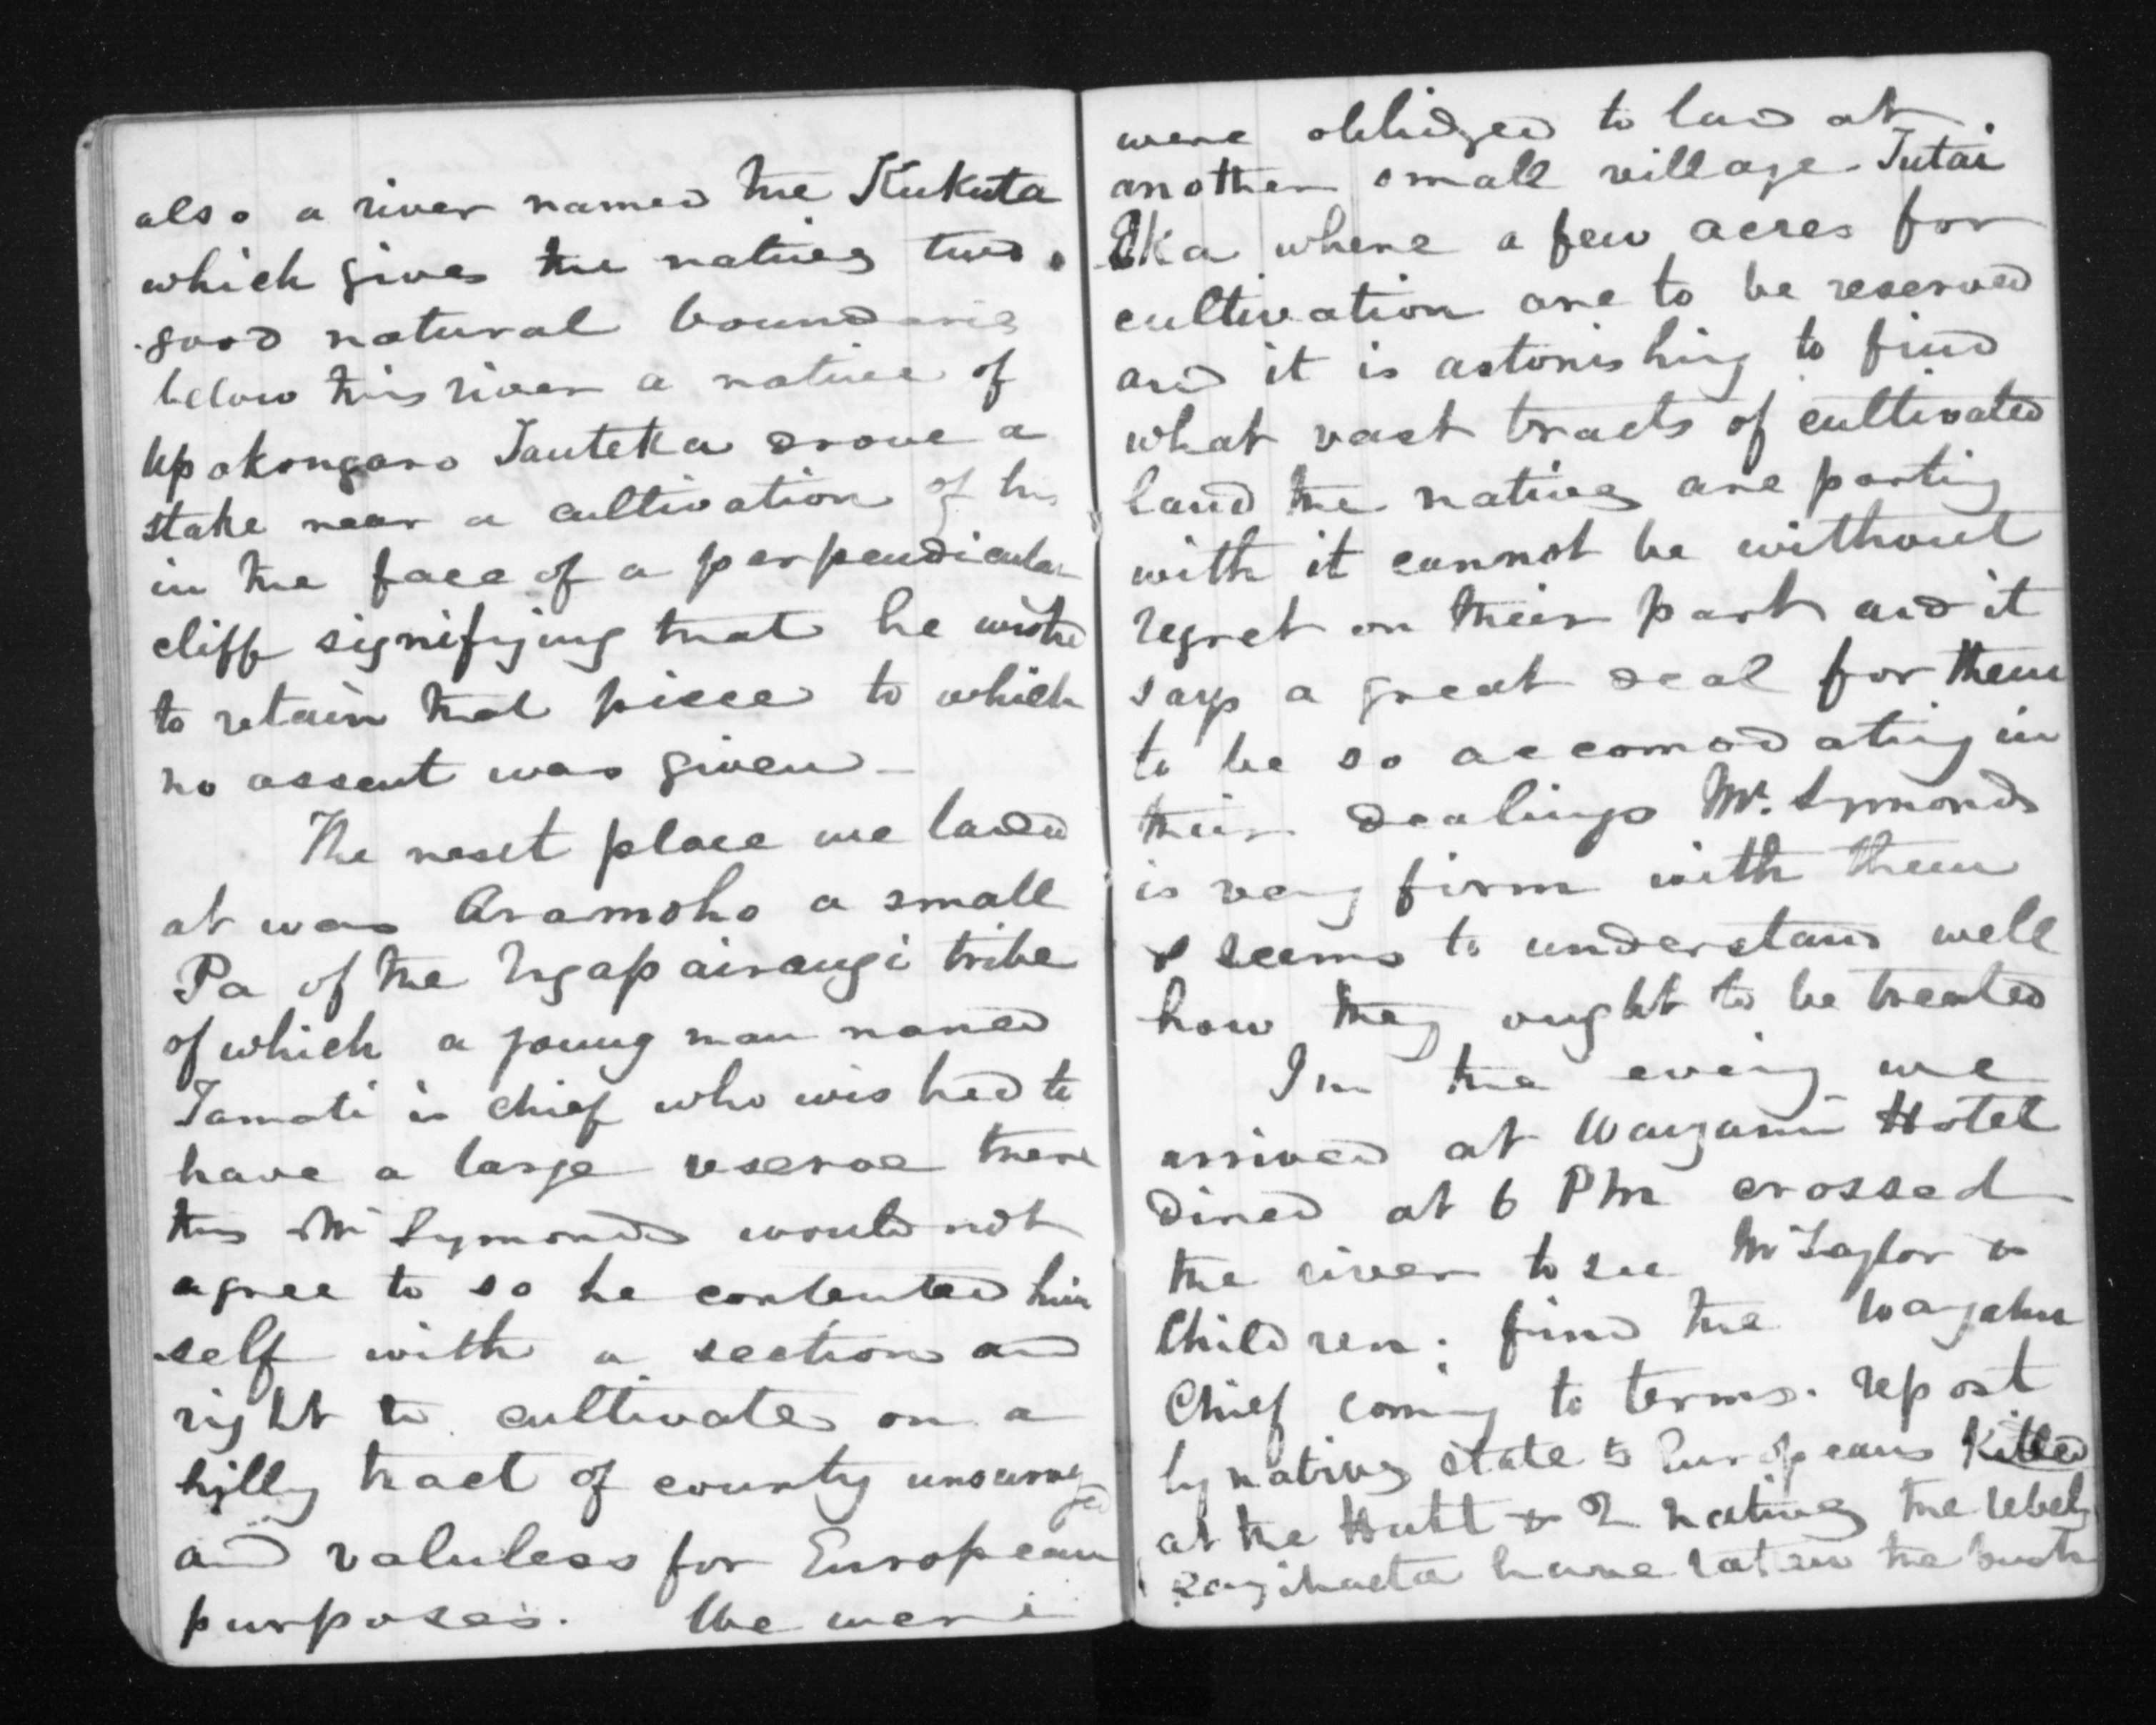 also a river named the Kukuta
which gives the natives two
good natural boundaries
below this river a native of
Upokongaro Tauteka drove a
stake near a cultivation of his
in the face of a perpendicular
cliff signifying that he wishe
to retain that piece to which
no assent was given -
The next place we landed
at was Aramoho a small
Pa of the Ngapairangi tribe
of which a young man named
Tamati is chief who wished to
have a large reserve there
this Mr Symonds would not
agree to so he contented him
self with a section and
right to cultivate on a
hilly tract of county unsurveyed
and valuless for European
purposes. We were
were obliged to land at
another small village - Tutai
Eka where a few acres for
cultivation are to be reserved
and it is astonishing to find
what vast tracts of cultivated
land the natives are parting
with it cannot be without
regret on their part and it
says a great deal for them
to be so accomodating in
their dealings Mr. Symonds
is very firm with them
& seems to understand well
how they ought to be treated
In the evening we
arrived at Wanganui Hotel
dined at 6 PM crossed
the river to see Mr Taylor &
Children; find the
Chief coming to terms. report
by natives state 5 Europeans Killed
at the Hutt & 2 natives the rebel
Rangihaeta have taken the bush